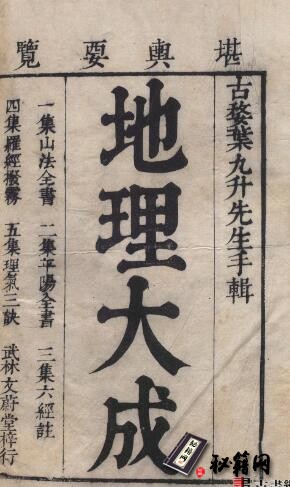 堪輿要覽
古婺葉九升先生手輯
地理大成
一集山法全書　二集平陽全書　三集六經註
四集羅經撥霧　五集理氣三訣　武林文蔚堂梓行
秘籍网
秘籍网